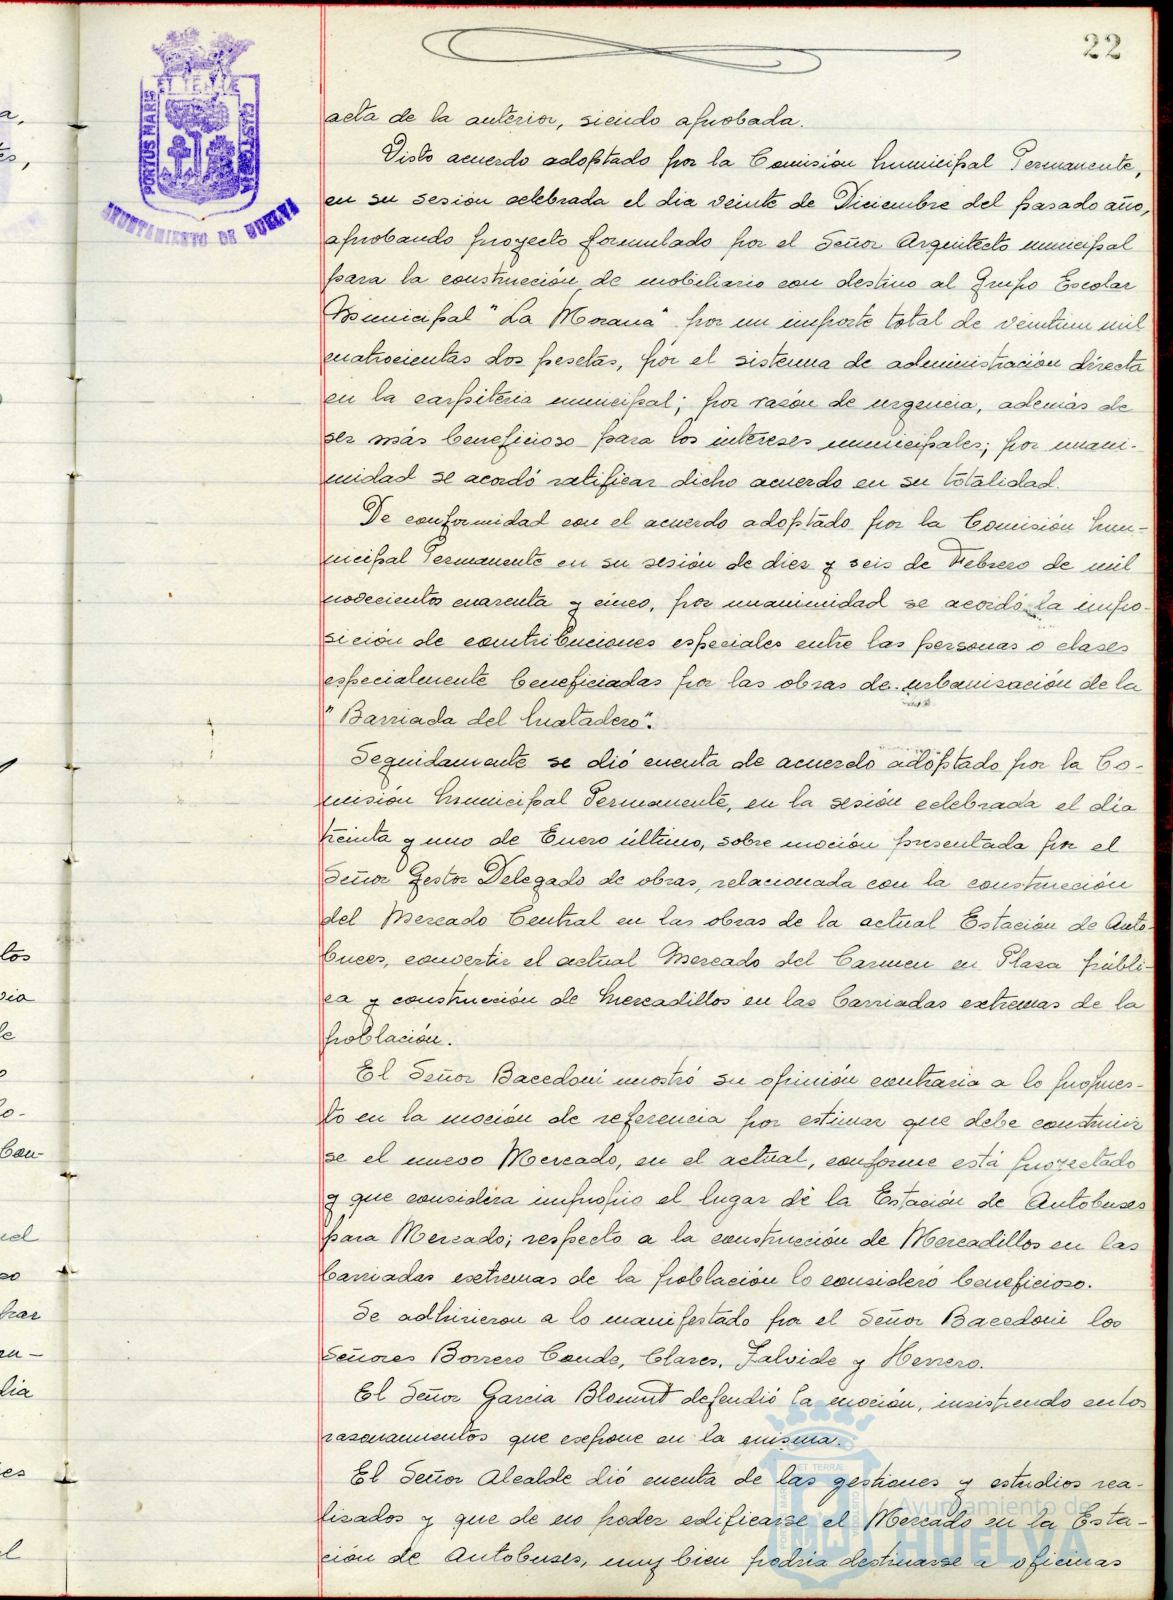 22
ET TERRÆ
PORTUS MARIS
CUSTODIA
AYUNTAMIENTO DE HUELVA
acta de la anterior, siendo aprobada.
Visto acuerdo adoptado por la Comisión Municipal Permanente,
en su sesión celebrada el dia veinte de Diciembre del pasado año,
aprobando proyecto formulado por el Señor Arquitecto municipal
para la construcción de mobiliario con destino al Grupo Escolar
Municipal "La Morana" por un importe total de veintiun mil
cuatrocientas dos pesetas, por el sistema de administración directa
en la carpiteria municipal; por razón de urgencia, además de
ser más beneficioso para los intereses municipales; por unani-
midad se acordó ratificar dicho acuerdo en su totalidad.
De conformidad con el acuerdo adoptado por la Comisión Mu-
nicipal Permanente en su sesión de diez y seis de Febrero de mil
novecientos cuarenta y cinco, por unanimidad se acordó la impo-
sición de contribuciones especiales entre las personas o clases
especialmente beneficiadas por las obras de urbanización de la
"Barriada del Matadero".
Seguidamente se dió cuenta de acuerdo adoptado por la Co-
misión Municipal Permanente, en la sesión celebrada el día
treinta y uno de Enero último, sobre moción presentada por el
Señor Gestor Delegado de obras, relacionada con la construcción
del Mercado Central en las obras de la actual Estación de Auto-
buces, convertir el actual Mercado del Carmen en Plaza públi-
ca y construcción de Mercadillos en las barriadas extremas de la
población.
El Señor Bacedoni mostró su opinión contraria a lo propues-
to en la moción de referencia por estimar que debe construir
se el nuevo Mercado, en el actual, conforme está proyectado
y que considera impropio el lugar de la Estación de Autobuses
para Mercado; respecto a la construcción de Mercadillos en las
barriadas extremas de la población lo consideró beneficioso.
Se adhirieron a lo manifestado por el Señor Bacedoni los
Señores Borrero Conde, Clares, Zalvide y Herrero.
El Señor Garcia Blomut defendió la moción, insistiendo en los
razonamientos que expone en la misma.
El Señor Alcalde dió cuenta de las gestiones y estudios rea-
lizados y que de no poder edificarse el Mercado en la Esta-
ción de Autobuses, muy bien podria destinarse a oficinas
Ayuntamiento de
HUELVA